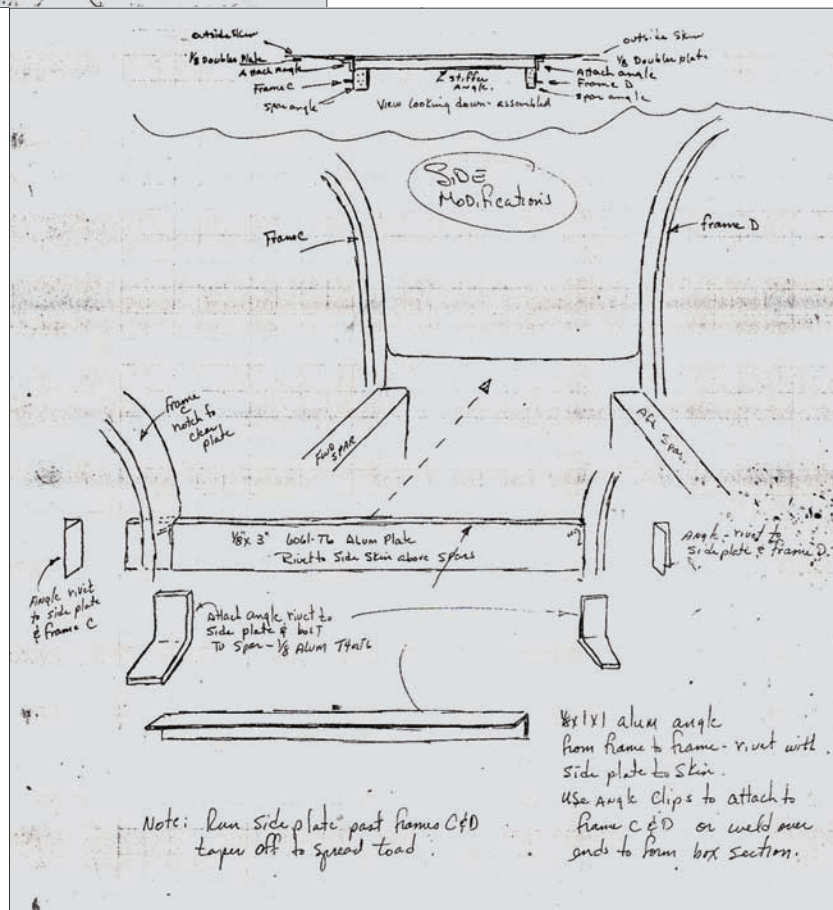 outside skin
1/8 Doubler Plate
Attach Angle
Frame C
Spar angle
outside skin
1/8 Doubler plate
Attach angle
Frame D
Spar angle
Stiffer
Angle.
View looking down - assembled
SIDE
Modifications
Frame C
frame D
frame
C
notch to
clear
plate
FWD SPAR
Aft Spar
1/8 x 3" 6061-T6 Alum Plate
Rivet to Side Skin above Spars
Angle rivet
to side plate
& frame C
Angle - rivet to
side plate & frame D.
Attach angle rivet to
side plate & bolt
To Spar - 1/8 Alum
1/8 x 1 x 1 alum angle
from frame to frame - rivet with
side plate to skin.
Use Angle Clips to attach to
frame C & D or weld over
ends to form box section.
Note: Run side plate past frames C & D
taper off to spread load.